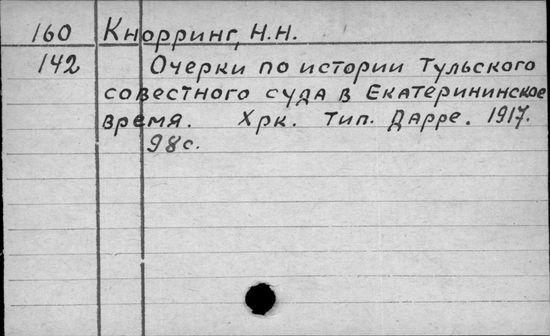 160 Кнорринг, Н.Н.
142 Очерки по истории Тульского
совестного суда в Екатерининское
время. Хрк. тип. Дарре. 1917.
98с.